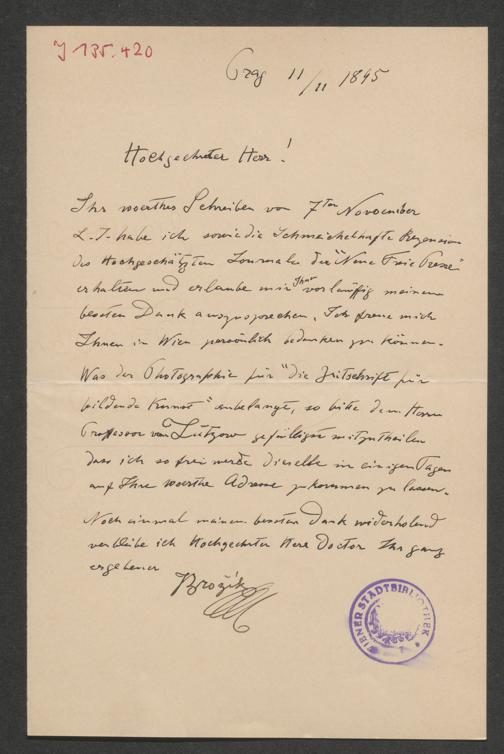 J 135.420
Prag 11/11 1895
Hochgeehrter Herr!
Ihr woerthes Schreiben von 7ten November
l. J. habe ich sowie die Schmeichelhafte Rezension
des Hochgeschätzten Journals der "Neue Freie Presse"
erhalten und erlaube mir Ihnen vorläuffig meinen
besten Dank auszusprechen. Ich freue mich
Ihnen in Wien persönlich bedanken zu können.
Was der Photographie für "Die Zeitschrift für
bildende Kunst" anbelangt, so bitte dem Herrn
Proffessor von Lützow gefälligst mitzutheilen
dass ich so frei werde dieselbe in einigen Tagen
auf Ihre woerthe Adresse zukommen zu lassen.
Noch einmal meinen besten Dank widerholend
verbleibe ich Hochgeehrter Herr Doctor Ihr ganz
ergebener
Brožík
WIENER STADTBIBLIOTHEK